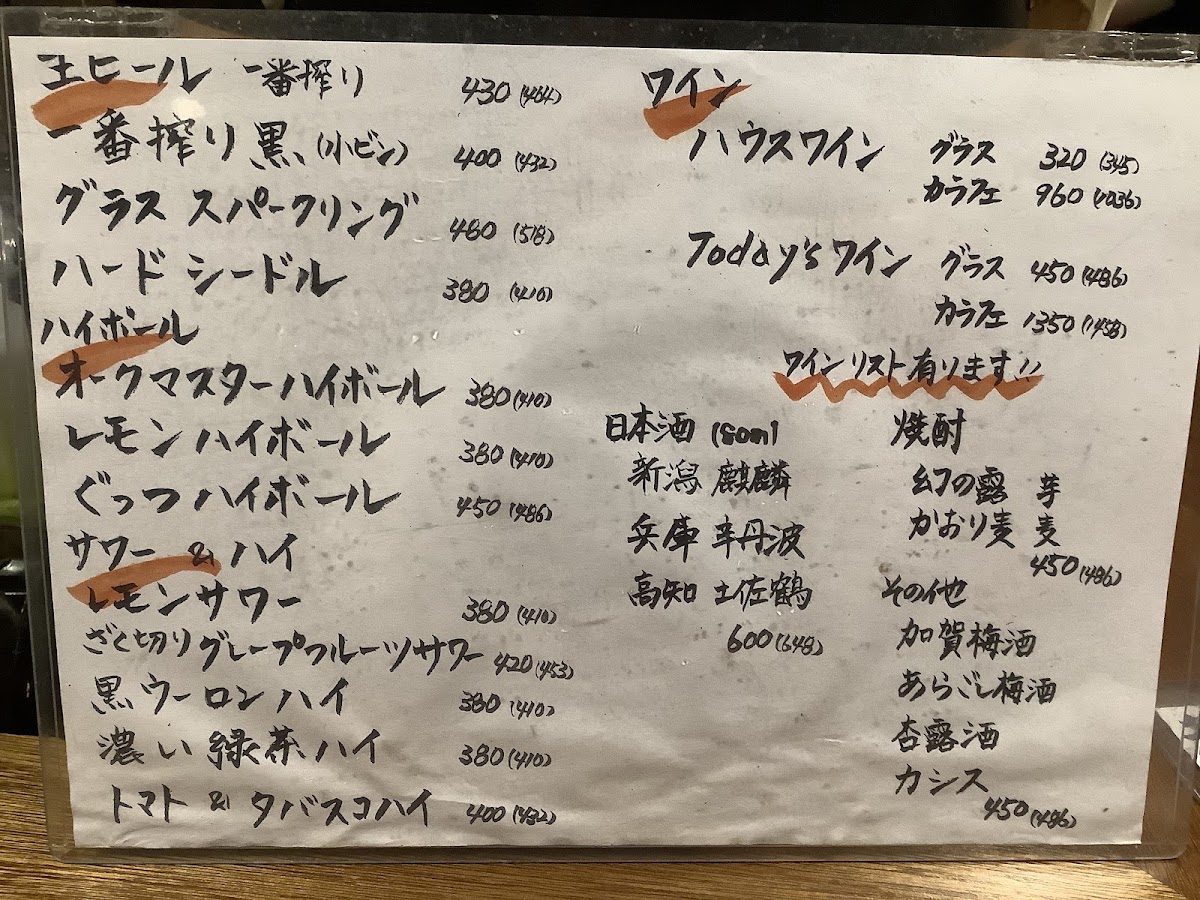 生ビール 一番搾り 430(464)
一番搾り黒(小ビン) 400(432)
グラス スパークリング 480(518)
ハード シードル 380(410)
ハイボール
オークマスターハイボール 380(410)
レモンハイボール 380(410)
ぐっつハイボール 450(486)
サワー & ハイ
レモンサワー 380(410)
ざく切りグレープフルーツサワー 420(453)
黒ウーロンハイ 380(410)
濃い緑茶ハイ 380(410)
トマト & タバスコハイ 400(432)
ワイン
ハウスワイン グラス 320(345)
カラフェ 960(1036)
Today's ワイン グラス 450(486)
カラフェ 1350(1458)
ワインリスト有ります!!
日本酒
新潟 麒麟
兵庫 辛丹波
高知 土佐鶴
600(648)
焼酎
幻の露 芋
かおり麦 麦
450(486)
その他
加賀梅酒
あらごし梅酒
杏露酒
カシス
450(486)